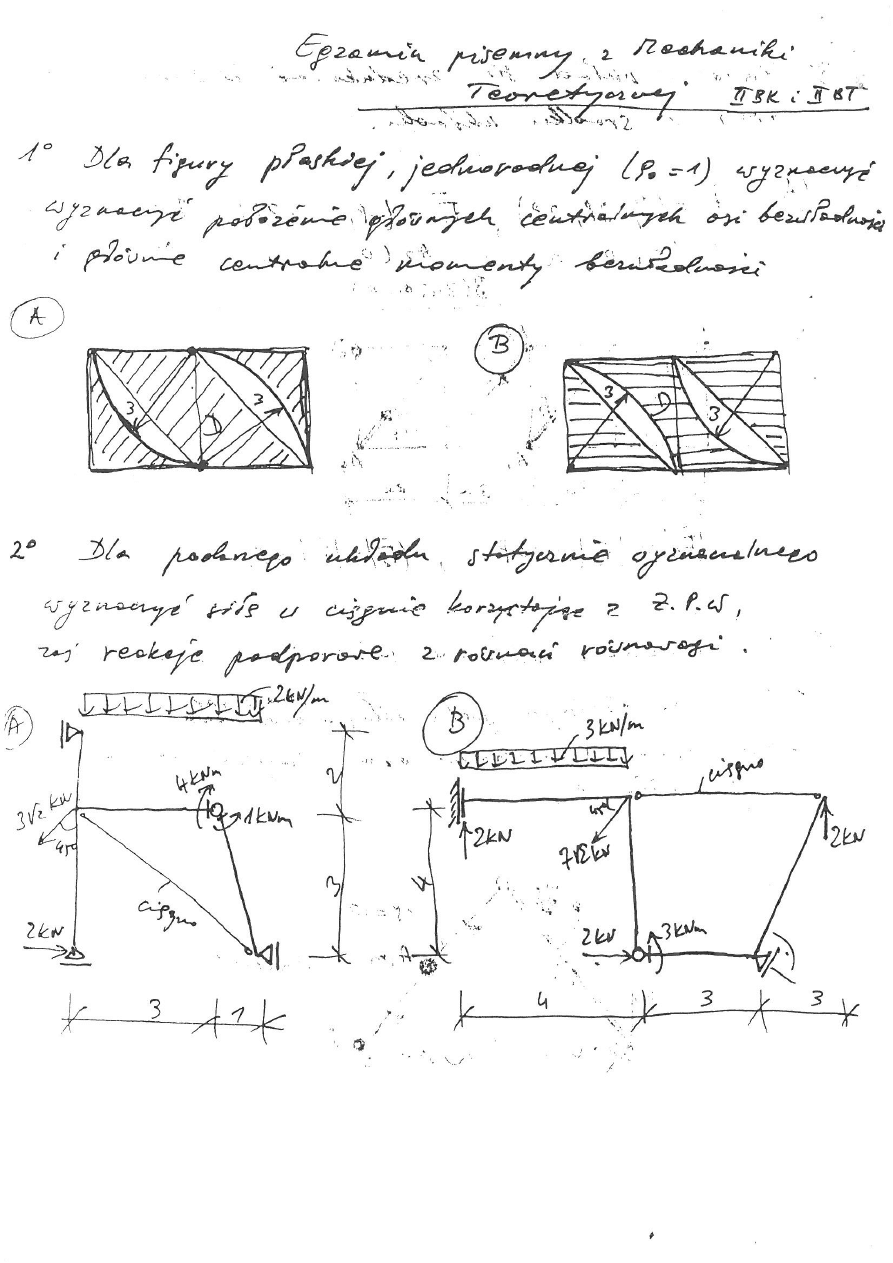 Egzamin pisemny z Mechaniki
Teoretycznej II BK i II BT
1° Dla figury płaskiej, jednorodnej (ρ₀ = 1) wyznaczyć
wyznaczyć położenie głównych centralnych osi bezwładności
i główne centralne momenty bezwładności
A
B
3
D
3
3
D
3
2° Dla podanego układu statycznie wyznaczalnego
wyznaczyć siłę w cięgnie korzystając z Z.P.W,
zaś reakcje podporowe z równań równowagi.
A
2kN/m
4kNm
1kNm
3√2 kN
45°
cięgno
2kN
2
3
3
1
B
3kN/m
cięgno
45°
2kN
7√2kN
2kN
4
2kN
3kNm
4
3
3